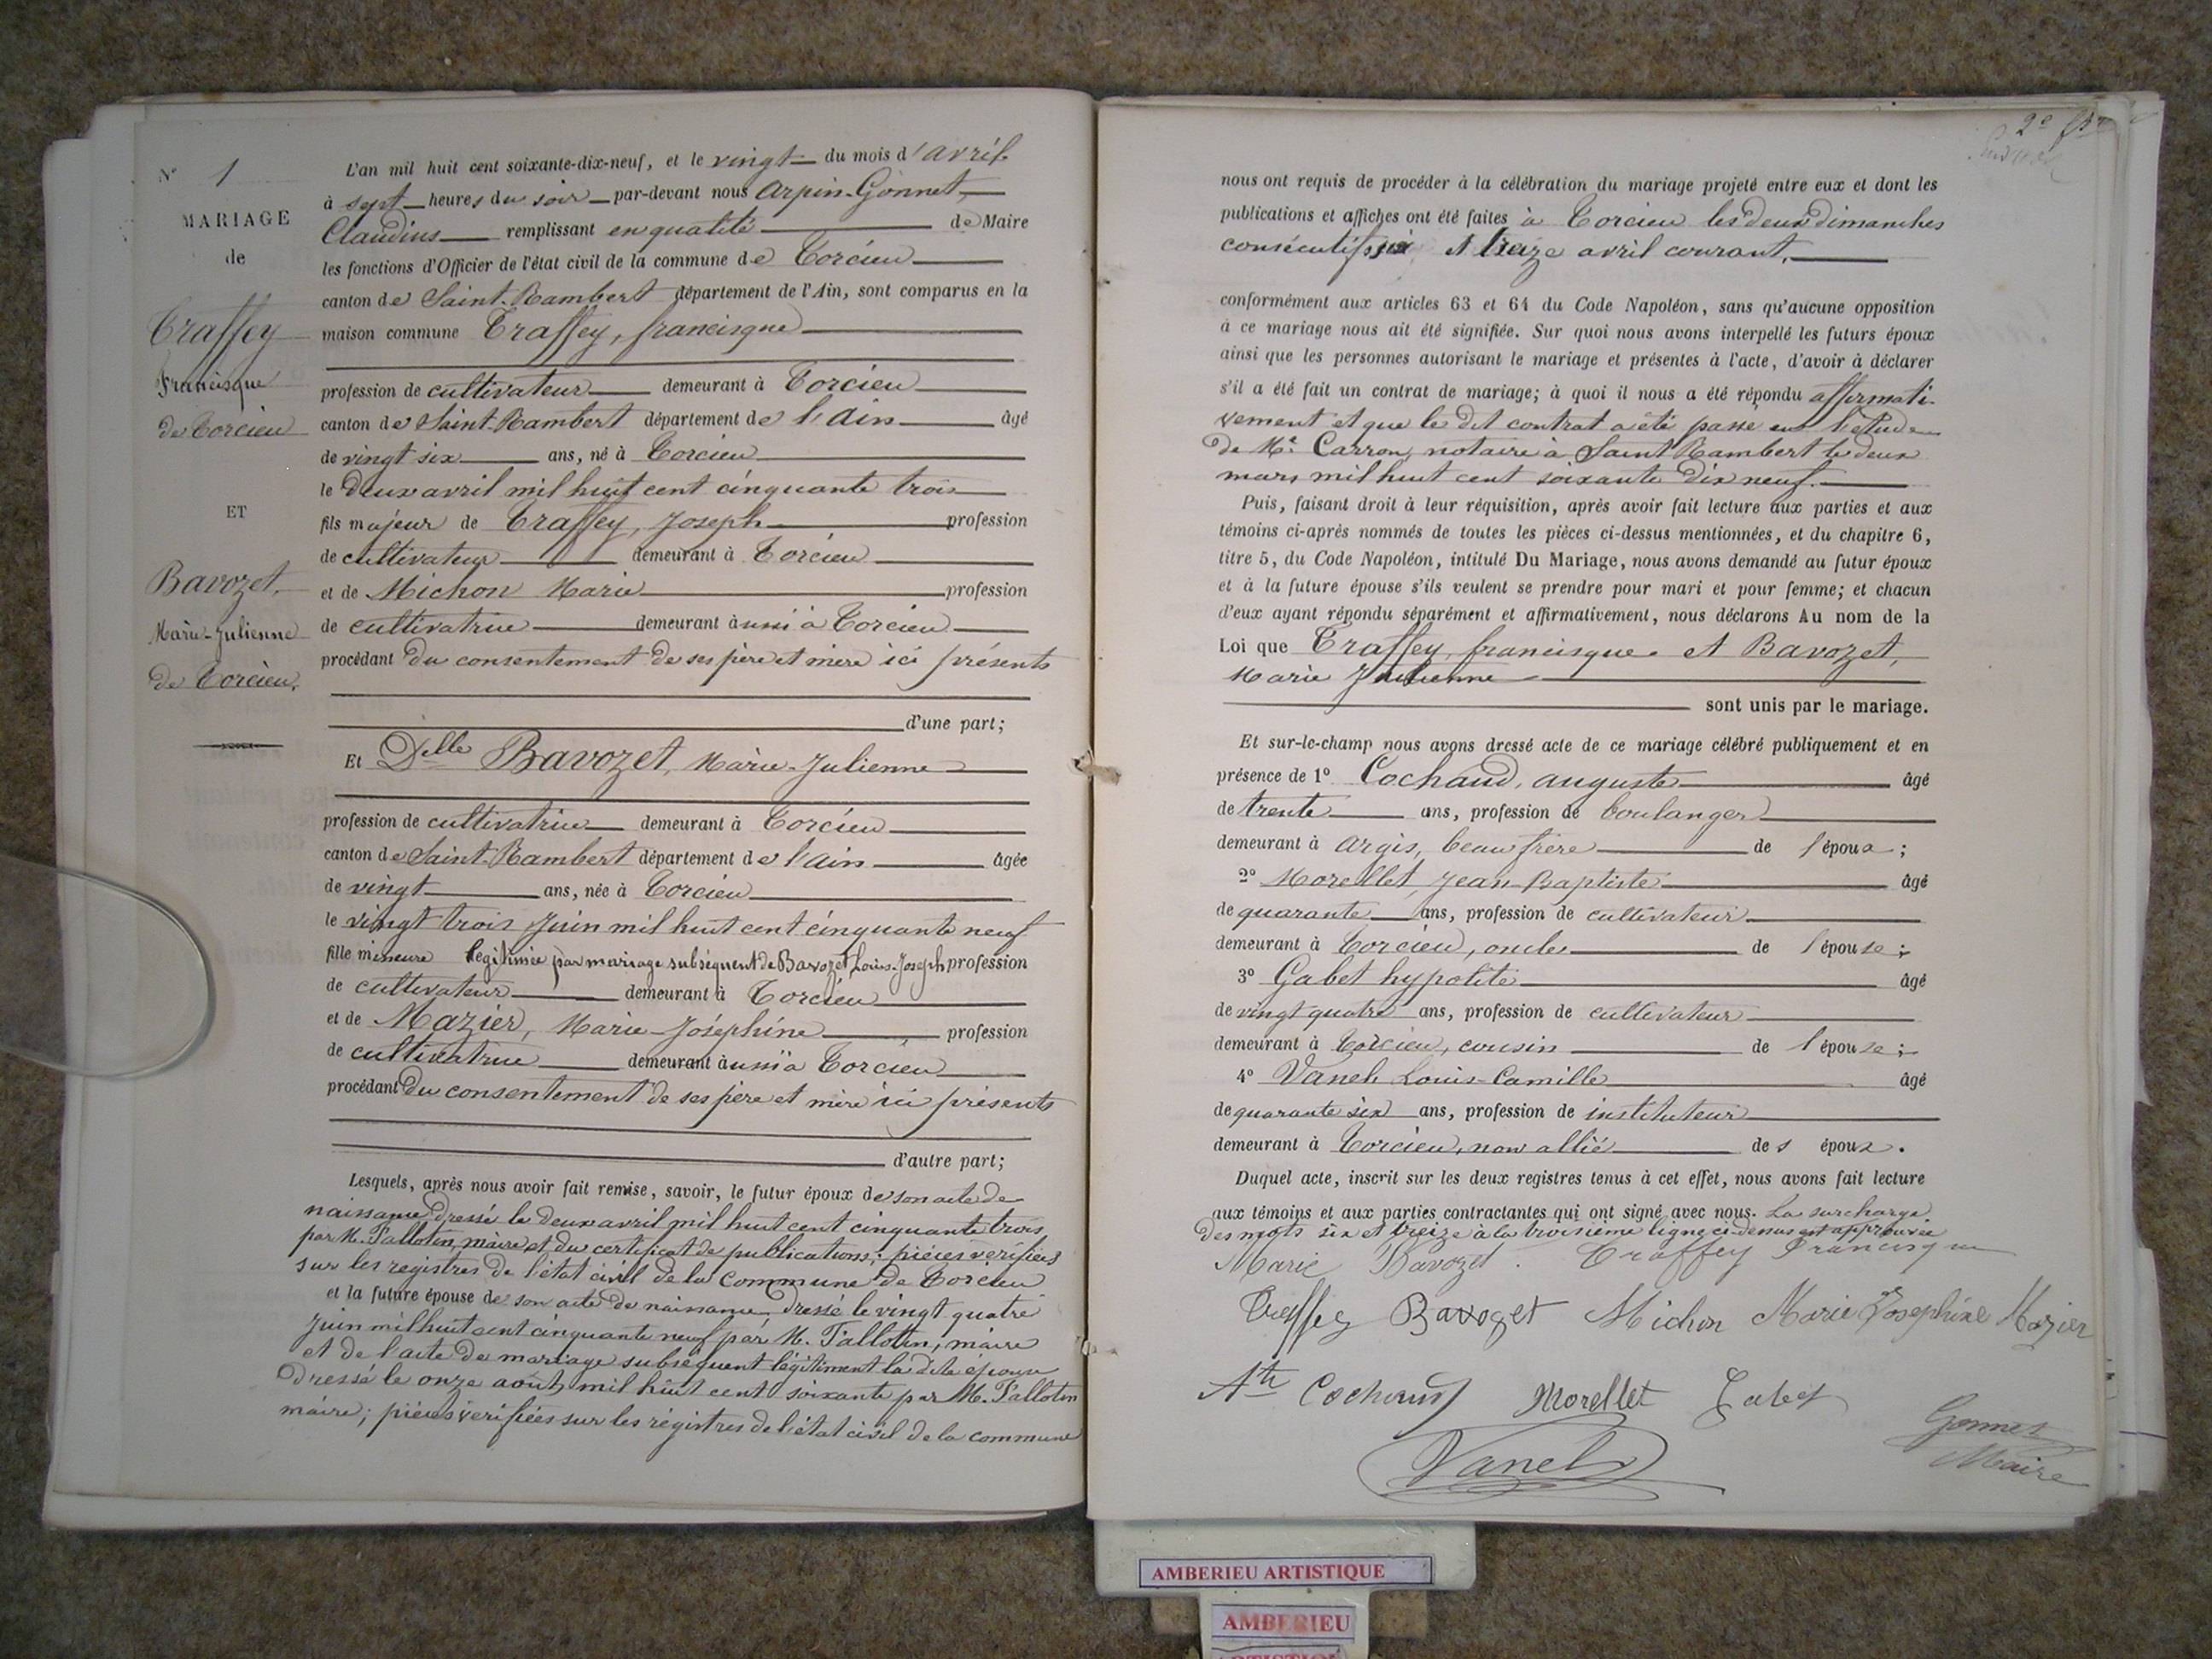 N° 1
MARIAGE
de
Traffey
Francisque
de Torcieu
ET
Bavozet,
Marie-Julienne
de Torcieu.
L'an mil huit cent soixante-dix-neuf, et le vingt du mois d'avril
à sept heures du soir par-devant nous Arpin-Gonnet,
Claudius remplissant en qualité de Maire
les fonctions d'Officier de l'état civil de la commune de Torcieu
canton de Saint-Rambert département de l'Ain, sont comparus en la
maison commune Traffey, francisque
profession de cultivateur demeurant à Torcieu
canton de Saint-Rambert département de l'Ain âgé
de vingt six ans, né à Torcieu
le deux avril mil huit cent cinquante trois
fils majeur de Traffey, Joseph profession
de cultivateur demeurant à Torcieu
et de Michon Marie profession
de cultivatrice demeurant aussi à Torcieu
procédant du consentement de ses père et mère ici présents
d'une part;
Et Delle Bavozet, Marie-Julienne
profession de cultivatrice demeurant à Torcieu
canton de Saint-Rambert département de l'Ain âgée
de vingt ans, née à Torcieu
le vingt trois Juin mil huit cent cinquante neuf
fille mineure légitimée par mariage subséquent de Bavozet Louis-Joseph profession
de cultivateur demeurant à Torcieu
et de Mazier, Marie-Joséphine profession
de cultivatrice demeurant aussi à Torcieu
procédant du consentement de ses père et mère ici présents
d'autre part;
Lesquels, après nous avoir fait remise, savoir, le futur époux de son acte de
naissance dressé le deux avril mil huit cent cinquante trois
par M. Tallotin, maire et du certificat de publications; pièces vérifiées
sur les registres de l'état civil de la Commune de Torcieu
et la future épouse de son acte de naissance dressé le vingt quatre
Juin mil huit cent cinquante neuf par M. Tallotin, maire
et de l'acte de mariage subséquent légitiment la dite épouse
dressé le onze août mil huit cent soixante par M. Tallotin
maire; pièces vérifiées sur les régistres de l'état civil de la commune
2e
nous ont requis de procéder à la célébration du mariage projeté entre eux et dont les
publications et affiches ont été faites à Torcieu les deux dimanches
consécutifs six et treize avril courant,
conformément aux articles 63 et 64 du Code Napoléon, sans qu'aucune opposition
à ce mariage nous ait été signifiée. Sur quoi nous avons interpellé les futurs époux
ainsi que les personnes autorisant le mariage et présentes à l'acte, d'avoir à déclarer
s'il a été fait un contrat de mariage; à quoi il nous a été répondu affirmati-
vement et que le dit contrat a été passé en l'étude
de Me Carron, notaire à Saint Rambert le deux
mars mil huit cent soixante dix neuf.
Puis, faisant droit à leur réquisition, après avoir fait lecture aux parties et aux
témoins ci-après nommés de toutes les pièces ci-dessus mentionnées, et du chapitre 6,
titre 5, du Code Napoléon, intitulé Du Mariage, nous avons demandé au futur époux
et à la future épouse s'ils veulent se prendre pour mari et pour femme; et chacun
d'eux ayant répondu séparément et affirmativement, nous déclarons Au nom de la
Loi que Traffey, francisque et Bavozet,
Marie Julienne
sont unis par le mariage.
Et sur-le-champ nous avons dressé acte de ce mariage célébré publiquement et en
présence de 1° Cochaud, auguste âgé
de trente ans, profession de boulanger
demeurant à Argis, beau frère de l'époux;
2° Morellet, Jean-Baptiste âgé
de quarante ans, profession de cultivateur
demeurant à Torcieu, oncle de l'épouse;
3° Gabet hypolite âgé
de vingt quatre ans, profession de cultivateur
demeurant à Torcieu, cousin de l'épouse;
4° Vanel Louis-Camille âgé
de quarante six ans, profession de instituteur
demeurant à Torcieu, non allié des époux.
Duquel acte, inscrit sur les deux registres tenus à cet effet, nous avons fait lecture
aux témoins et aux parties contractantes qui ont signé avec nous. La surcharge
des mots six et treize à la troisième ligne ci-dessus est approuvée
Marie Bavozet. Traffey Francisque
Traffey Bavozet Michon Marie Josephine Mazier
Ate Cochaud Morellet Gabet
Gonnet
Maire
Vanel
AMBERIEU ARTISTIQUE
AMBERIEU
ARTISTIQUE